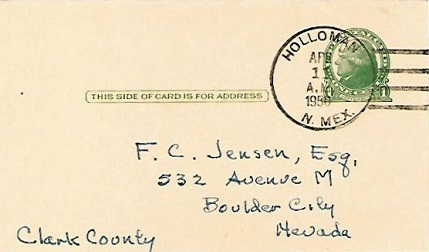 HOLLOMAN
APR
A.M.
1950
N. MEX.
THIS SIDE OF CARD IS FOR ADDRESS
F. C. Jensen, Esq.
532 Avenue M
Boulder City
Nevada
Clark County